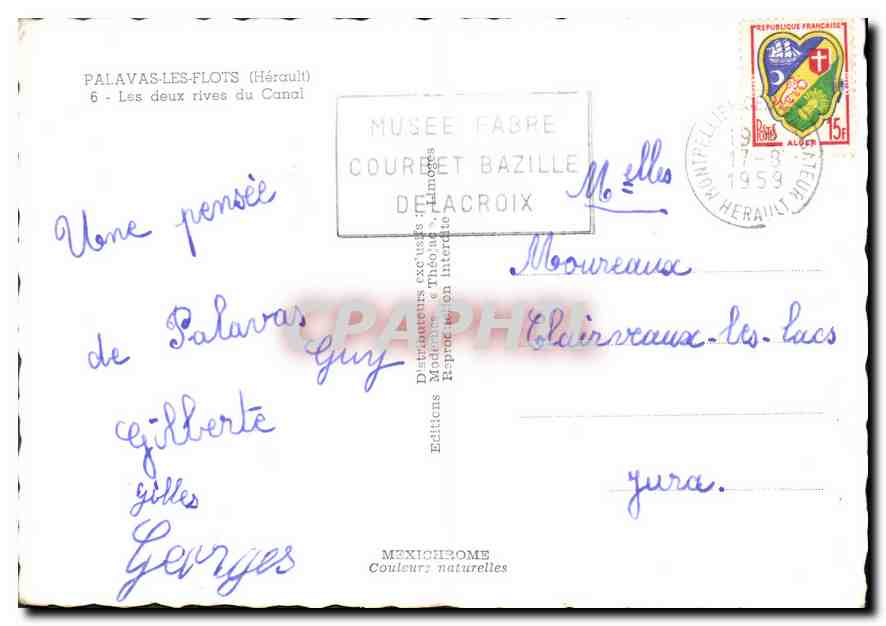 PALAVAS-LES-FLOTS (Hérault)
6 - Les deux rives du Canal
Une pensée
de Palavas
Guy
Gilberte
Gilles
Georges
MUSEE FABRE
COURBET BAZILLE
DELACROIX
REPUBLIQUE FRANÇAISE
POSTES 15F
ALGER
MONTPELLIER
17-8
1959
HERAULT
Melles
Moureaux
Clairveaux-les-lacs
Jura.
Editions Modernes « Théojac », Limoges
Distributeurs exclusifs :
Reproduction interdite
MEXICHROME
Couleurs naturelles
CPAPHIL